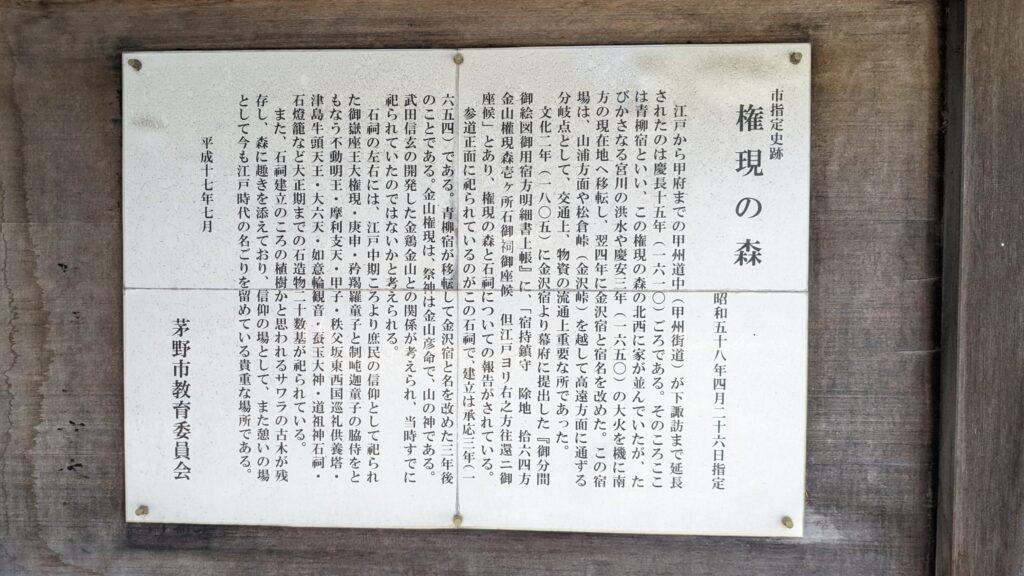 市指定史跡
権現の森
昭和五十八年四月二十六日指定
江戸から甲府までの甲州道中（甲州街道）が下諏訪まで延長
されたのは慶長十五年（一六一〇）ごろである。そのころここ
は青柳宿といい、この権現の森の北西に家が並んでいたが、た
びかさなる宮川の洪水や慶安三年（一六五〇）の大火を機に南
方の現在地へ移転し、翌四年に金沢宿と宿名を改めた。この宿
場は、山浦方面や松倉峠（金沢峠）を越して高遠方面に通ずる
分岐点として、交通上、物資の流通上重要な所であった。
文化二年（一八〇五）に金沢宿より幕府に提出した『御分間
御絵図御用宿方明細書上帳』に、「宿持鎮守　除地　拾六四方
金山権現森壱ヶ所石御祠御座候　但江戸ヨリ右之方往還ニ御
座候」とあり、権現の森と石祠についての報告がされている。
参道正面に祀られているのがこの石祠で、建立は承応三年（一
六五四）である。青柳宿が移転して金沢宿と名を改めた三年後
のことである。金山権現は、祭神は金山彦命で、山の神である。
武田信玄の開発した金鶏金山との関係が考えられ、当時すでに
祀られていたのではないかと考えられる。
石祠の左右には、江戸中期ころより庶民の信仰として祀られ
た御嶽座王大権現・庚申・矜羯羅童子と制吒迦童子の脇侍をと
もなう不動明王・摩利支天・甲子・秩父坂東西国巡礼供養塔・
津島牛頭天王・大六天・如意輪観音・蚕玉大神・道祖神石祠・
石燈籠など大正期までの石造物二十数基が祀られている。
また、石祠建立のころの植樹かと思われるサワラの古木が残
存し、森に趣きを添えており、信仰の場として、また憩いの場
として今も江戸時代の名ごりを留めている貴重な場所である。
平成十七年七月
茅野市教育委員会